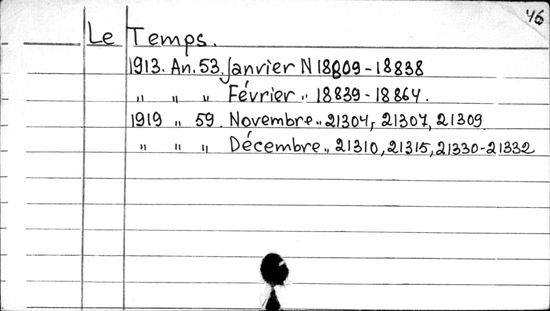 46
Le Temps.
1913. An. 53. Janvier N 18809-18838
" " " Février " 18839-18864.
1919 " 59. Novembre " 21304, 21307, 21309
" " " Décembre " 21310, 21315, 21330-21332